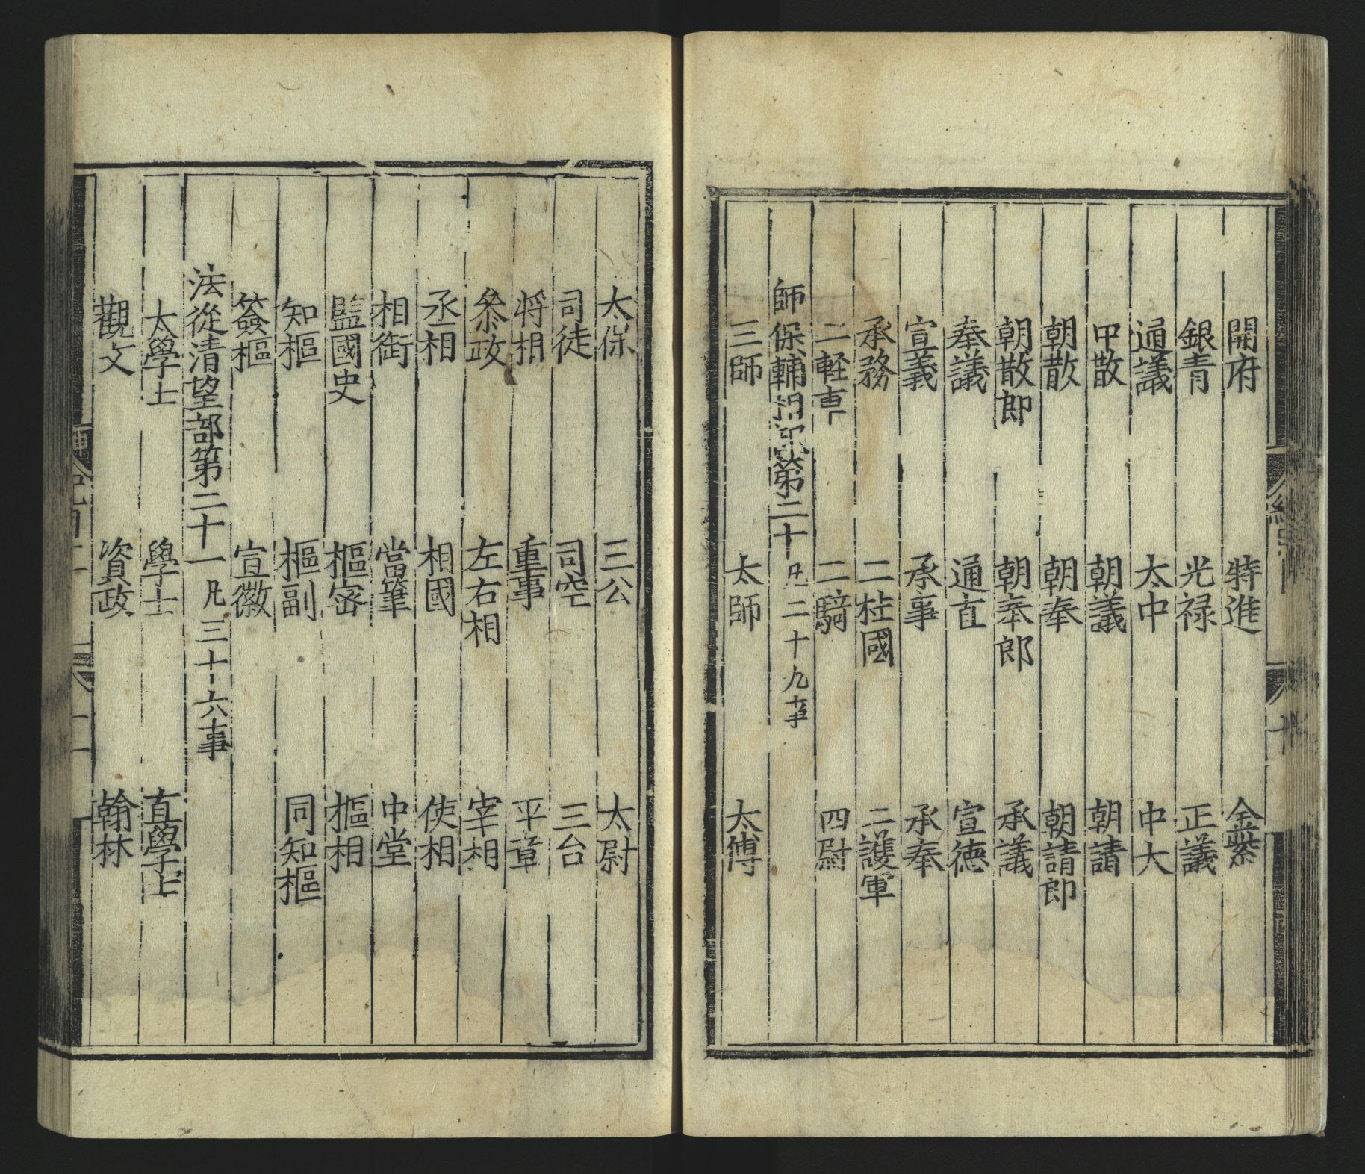 開府 特進 金紫
銀青 光禄 正議
通議 太中 中大
中散 朝議 朝請
朝散 朝奉 朝請郎
朝散郎 朝奉郎 承議
奉議 通直 宣德
宣義 承事 承奉
承務 二柱國 二護軍
二軽車 二騎 四尉
師保輔相部第二十 凡二十九事
三師 太師 太傅
太保 三公 太尉
司徒 司空 三台
將相 重事 平章
叅政 左右相 宰相
丞相 相國 使相
相衙 當筆 中堂
監國史 樞密 樞相
知樞 樞副 同知樞
簽樞 宣徽
法從清望部第二十一 凡三十六事
大學士 學士 直學士
觀文 資政 翰林